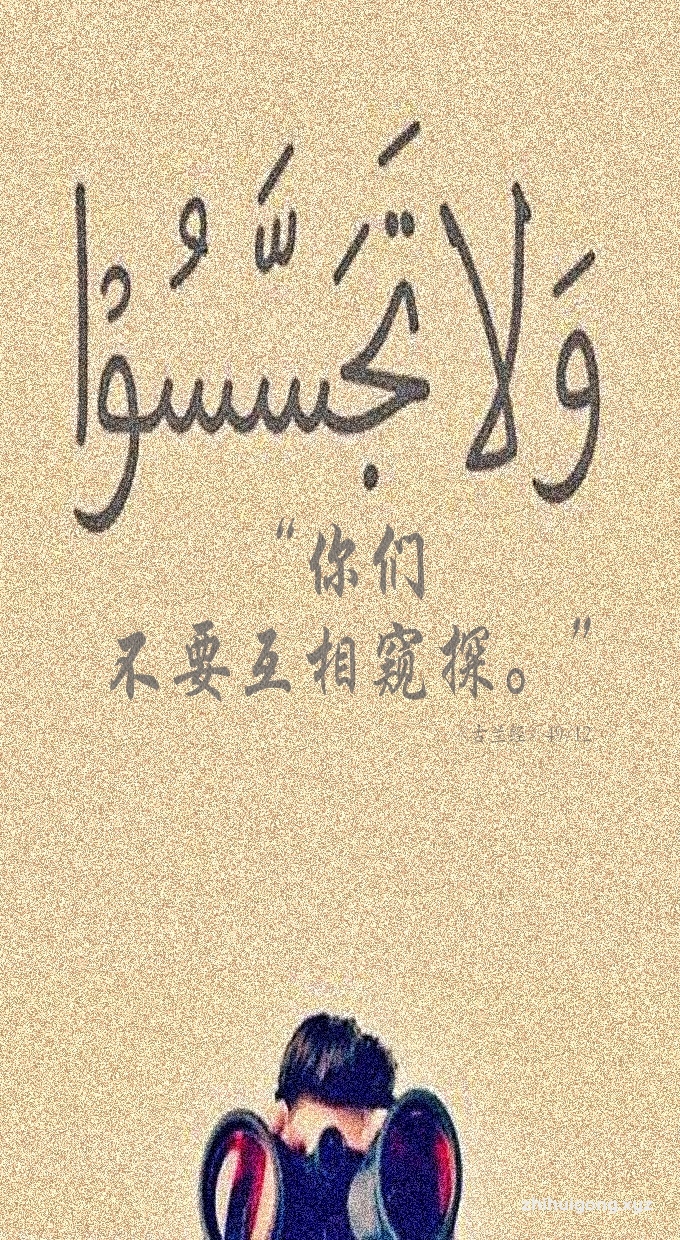 وَلَا تَجَسَّسُوْا
“你们
不要互相窥探。”
《古兰经》49:12
shihuigong.xgz